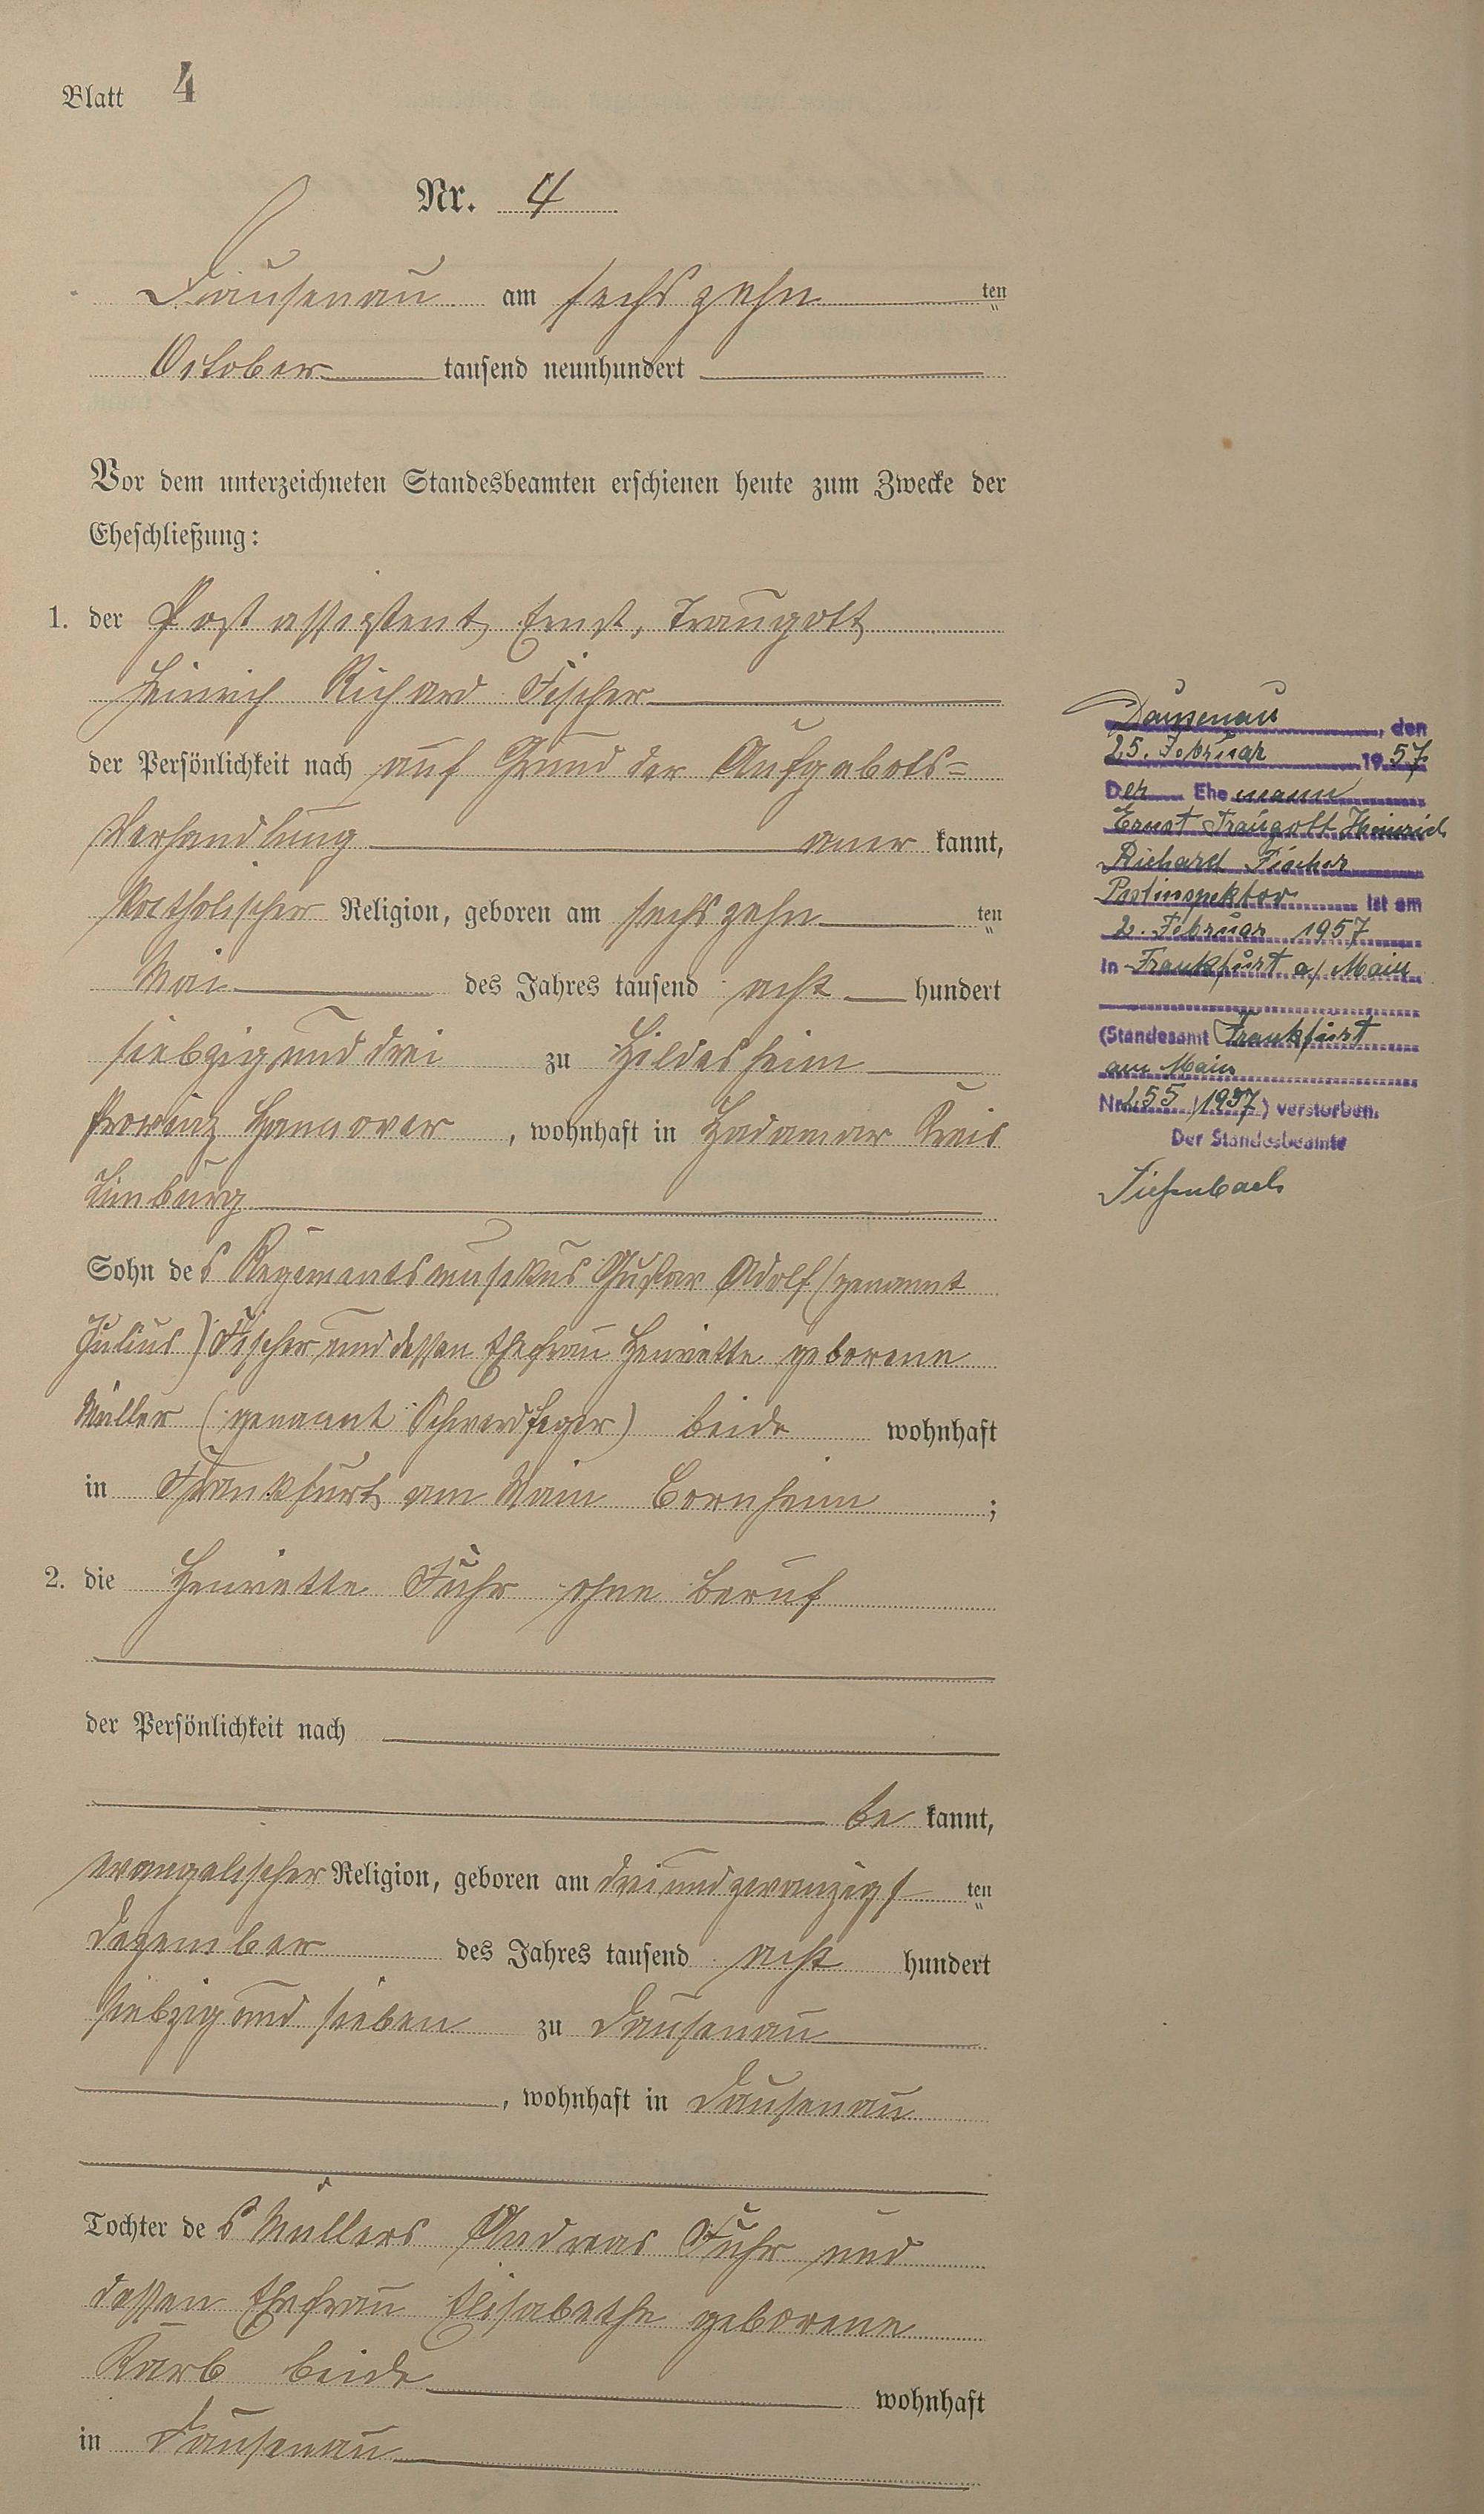 Blatt 4
Nr. 4
Dausenau am sechszehn ten
October tausend neunhundert
Vor dem unterzeichneten Standesbeamten erschienen heute zum Zwecke der
Eheschließung:
1. der Postassistent Ernst, Traugott
Heinrich Richard Fischer
der Persönlichkeit nach auf Grund der Aufgebots-
Verhandlung aner kannt,
katholischer Religion, geboren am sechszehn ten
Mai des Jahres tausend acht hundert
siebzig und drei zu Hildesheim
Provinz Hannover, wohnhaft in Hadamar Kreis
Limburg
Sohn des Regimentsmusikus Gustav Adolf (genannt
Julius) Fischer und dessen Ehefrau Henriette geborene
Müller (genannt Schwerdfeger) beide wohnhaft
in Frankfurt am Main Bornheim;
2. die Henriette Fuhr ohne Beruf
der Persönlichkeit nach
be kannt,
evangelischer Religion, geboren am dreiundzwanzigs ten
Dezember des Jahres tausend acht hundert
siebzig und sieben zu Dausenau
, wohnhaft in Dausenau
Tochter des Müllers Andreas Fuhr und
dessen Ehefrau Elisabethe geborene
Karb beide wohnhaft
in Dausenau
Dausenau, den
25. Februar 1957
Der Ehemann
Ernst Traugott Heinrich
Richard Fischer
Postinspektor ist am
2. Februar 1957
in Frankfurt a/Main
(Standesamt Frankfurt
am Main
Nr. 255/1957) verstorben.
Der Standesbeamte